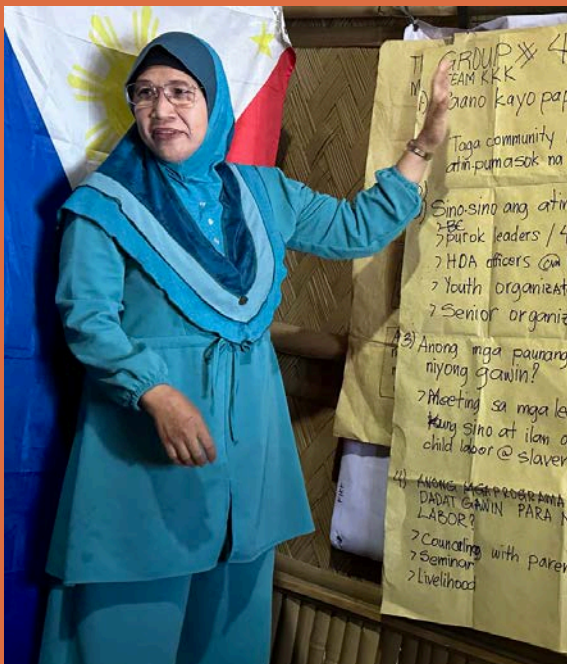 GROUP # 4
TEAM KKK
Paano kayo pap
Taga community
atin pumasok na
Sino-sino ang atin
> BC
> purok leaders / 4
> HOA officers
> Youth organizat
> Senior organiz
3) Anong mga paunang
niyong gawin?
> Meeting sa mga le
kung sino at ilan a
child labor @ slaver
4) ANONG MGA PROGRAMA
DADAT GAWIN PARA M
LABOR?
> Counceling with paren
> Seminar
> Livelihood